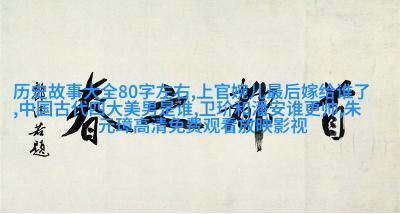 历史故事大全80字左右,上官婉儿最后嫁给谁了
,中国古代四大美男是谁,卫玠和潘安谁更帅,朱
元璋高清免费观看放映影视
首都之春
若題